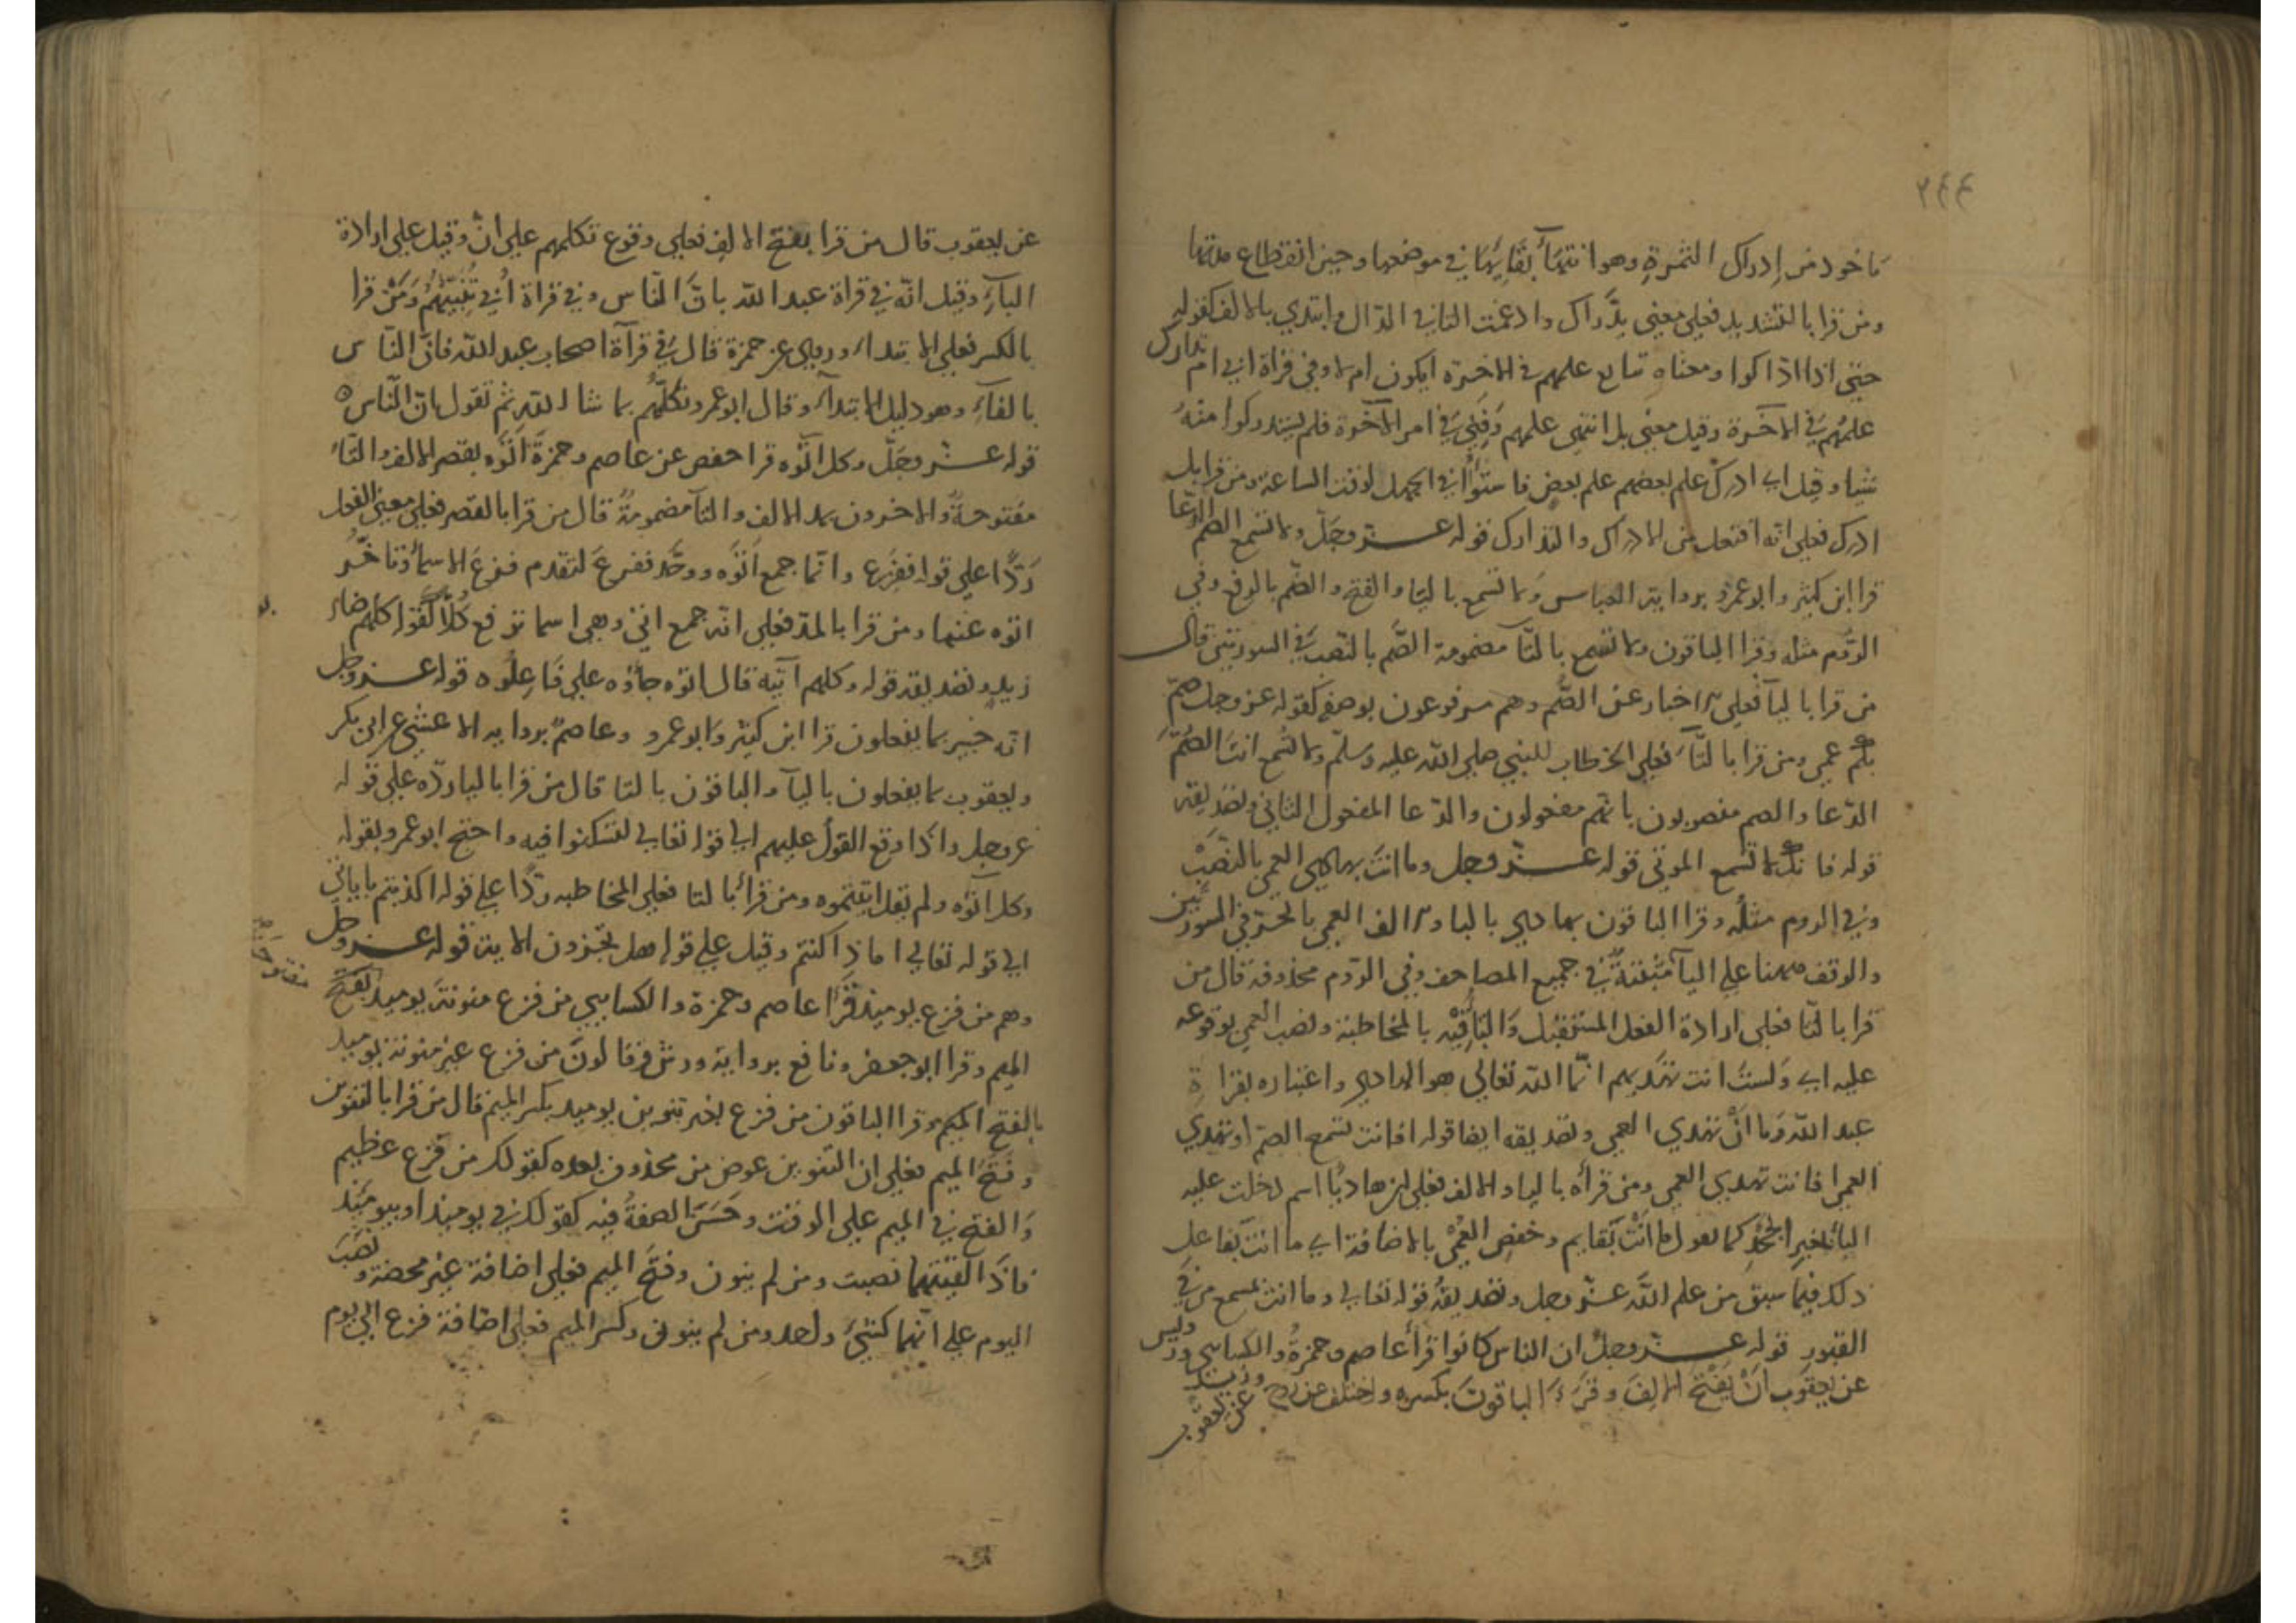 ٢٤٤
ماخوذ من إدراك الثمرة وهو انتهآ بقايها في موضعها وحين انقطاع مدتها
ومن قرا بالتشديد فعلي معني تدَّراك وادغمت التا في الدال وابتدي بالالف كقوله
حتي اذا اداركوا ومعناه تتابع علمهم في الاخرة ايكون ام لا وفي قراة ابي ام تدارك
علمهم في الآخرة وقيل معني بل انتهي علمهم وَفَنِي في امر الآخرة فلم يستدركوا منهُ
شيا وقيل اي ادرك علم بعضهم علم بعض فاستوَوا في الجهل لوقت الساعة ومن قرا بل
ادرك فعلي انه افتعل من الادراك والتدارك قوله عز وجلّ ولا تسمع الصم الدّعا
قرا ابن كثير وابو عمرو برواية العباس ولا تسمع باليا والفتح والصّم بالرفع وفي
الرّوم مثله وقرا الباقون ولا تسمع بالتّا مضمومة الصّم بالنّصب في السورتين قال
من قرا باليآ فعلي اخبار عن الصُّم وهم مرفوعون بوصفهم كقوله عز وجل صمّ
بكم عمي ومن قرا بالتّآ فعلي الخطاب للنبي صلي الله عليه وسلّم ولا تسمع انت الصُّمَّ
الدّعا والصم منصوبون بانهم مفعولون والدّعا المفعول الثاني وتصديقه
قوله فانك لا تسمع الموتي قوله عز وجل وما انتَ بهادي العمي بالنّصب
وفي الروم مثلُه وقرا الباقون بهادي بالبا والف العمي بالجرّ في السورتين
والوقف ههنا علي اليآ مثبتة في جميع المصاحف وفي الرّوم محذوفة قال من
قرا بالتّا فعلي ارادة الفعل المستقبل والتا فيه بالمخاطبة ونصب العمي بوقوعه
عليه اي وَلستَ انت تهديهم انّما الله تعالي هو الهادي واعتباره بقراة
عبد الله وَما اَنْ تهدي العمي وتصديقه ايضا قوله افانت تسمع الصمّ او تهدي
العمي افانت تهدي العمي ومن قرأه باليا والالف فعلي انّ هاديًا اسم دخلت عليه
البا لخبر الجحد كما تقول ما اَنْتَ بقايم وخفض العُمْي بالاضافة اي ما انت بفاعل
ذلك فيما سبق من علم اللّه عز وجل وتصديقهُ قوله تعالي وما انت بمسمع من في
القبور قوله عز وجلّ ان الناس كانوا قرأ عاصم وحمزةُ والكسايي وَرُوَيس
عن يعقوب اَنَّ بفتح الالف وقَرَءَ الباقون بكسره واختلف عن روح وزيد
عن يعقوب
عن يعقوب قال من قرا بفتح الالف فعلي وقوع تكلمهم علي انّ وقيل علي ارادة
البآءِ وقيل انّه في قراة عبد اللّه بانّ النّاس وفي قراة أُبي تُنَبِّئهُم وَمَنْ قرا
بالكسر فعلي الابتداء وروي عن حمزة قال في قرآة اصحاب عبد اللّه فانّ النّاس
بالفآءِ وهو دليل الابتدآء وقال ابو عمرو تكلّمُهم بما شا اللّه ثم تقول ان النّاس ٥
قوله عز وجَلّ وكل اتَوْه قرا حفص عن عاصم وحمزةُ اتَوْه بقصر الالف والتّآءُ
مفتوحةٌ والاخرون بمد الالف والتآ مضمومةٌ قال من قرا بالقصر فعلي معني الفعل
رَدًّا علي قوله ففزع وانّما جمع اَتَوْه ووحّد ففزعَ لتقدم فزِع الاسما وتاخّر
اتوه عنها ومن قرا بالمد فعلي انّه جمع اتي وهي اسما ترفع كلاًّ كقولك كلهم ضاربو
زيدٍ وتصديقه قوله وكلهم آتيه قال اتوه جاؤه علي فَاعِلُوه قوله عز وجل
انّه خبير بما يفعلون قرا ابن كثير وابو عمرو وعاصم برواية الاعشي عن ابي بكر
ويعقوب بما يفعلون باليآ والباقون بالتا قال من قرا باليا ردّه علي قوله
عز وجل واذا وقع القولُ عليهم الي قوله تعالي لتسكنوا فيه واحتج ابو عمرو بقوله
وكل آتَوْه ولم يقل اتيتموه ومن قرأ بالتا فعلي المخاطبه ردًّا علي قوله اكذبتم باياتي
الي قوله تعالي اماذا كنتم وقيل علي قوله هل تجزون الاية قوله عز وجل
وهم من فزع يوميذ قرَأ عاصم وحمزة والكسايي من فزع منونةً يوميذ بفتح
مفتوحة
الميم وقرا ابو جعفر ونافع برواية ورش وقالونَ من فزع غير منونة يوميذ
بالفتح الميم وقرا الباقون من فزع بغير تنوين يوميذ بكسر الميم قال من قرا بالتنوين
وفتح الميم فعلي ان التنوين عوض من محذوف بعده كقولك من فزع عظيم
وَالفتح في الميم علي الوقت وحَسُنَ الصفةُ فيه كقولك في يوميذ او بيوميذ
فاذَا القيتهما نصبت ومن لم ينون وفتح الميم فعلي اضافة غير محضة ونصبَ
اليوم علي انّهما كشيءٍ واحد ومن لم ينون وكسر الميم فعلي اضافة فزع الي يوم